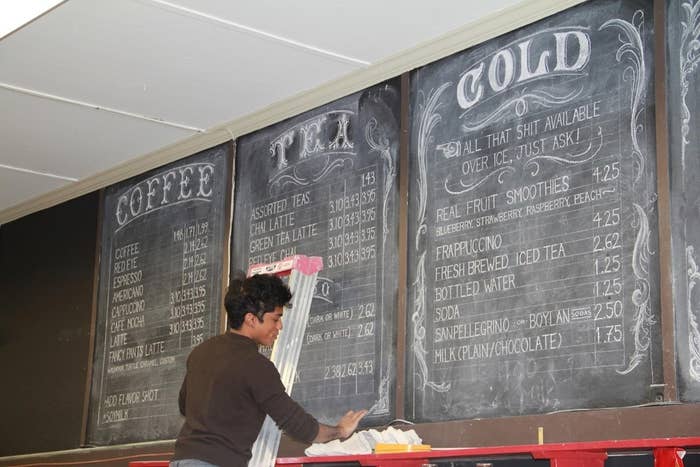 COFFEE
COFFEE 1.48 1.71 1.99
RED EYE 2.14 2.62
ESPRESSO 2.14 2.62
AMERICANO 2.14 2.62
CAPPUCCINO 3.10 3.43 3.95
CAFE MOCHA 3.10 3.43 3.95
LATTE 3.10 3.43 3.95
FANCY PANTS LATTE 3.95
TURTLE, CARAMEL,
ADD FLAVOR SHOT
SOYMILK
TEA
1.43
ASSORTED TEAS 3.10 3.43 3.95
CHAI LATTE 3.10 3.43 3.95
GREEN TEA LATTE 3.10 3.43 3.95
RED EYE CHAI 3.10 3.43 3.95
O
(DARK OR WHITE) 2.62
DARK OR WHITE) 2.62
2.38 2.62 3.43
COLD
ALL THAT SHIT AVAILABLE
OVER ICE, JUST ASK!
REAL FRUIT SMOOTHIES 4.25
BLUEBERRY, STRAWBERRY, RASPBERRY, PEACH~
FRAPPUCCINO 4.25
FRESH BREWED ICED TEA 2.62
BOTTLED WATER 1.25
SODA 1.25
SANPELLEGRINO OR BOYLAN SODAS 2.50
MILK (PLAIN/CHOCOLATE) 1.75